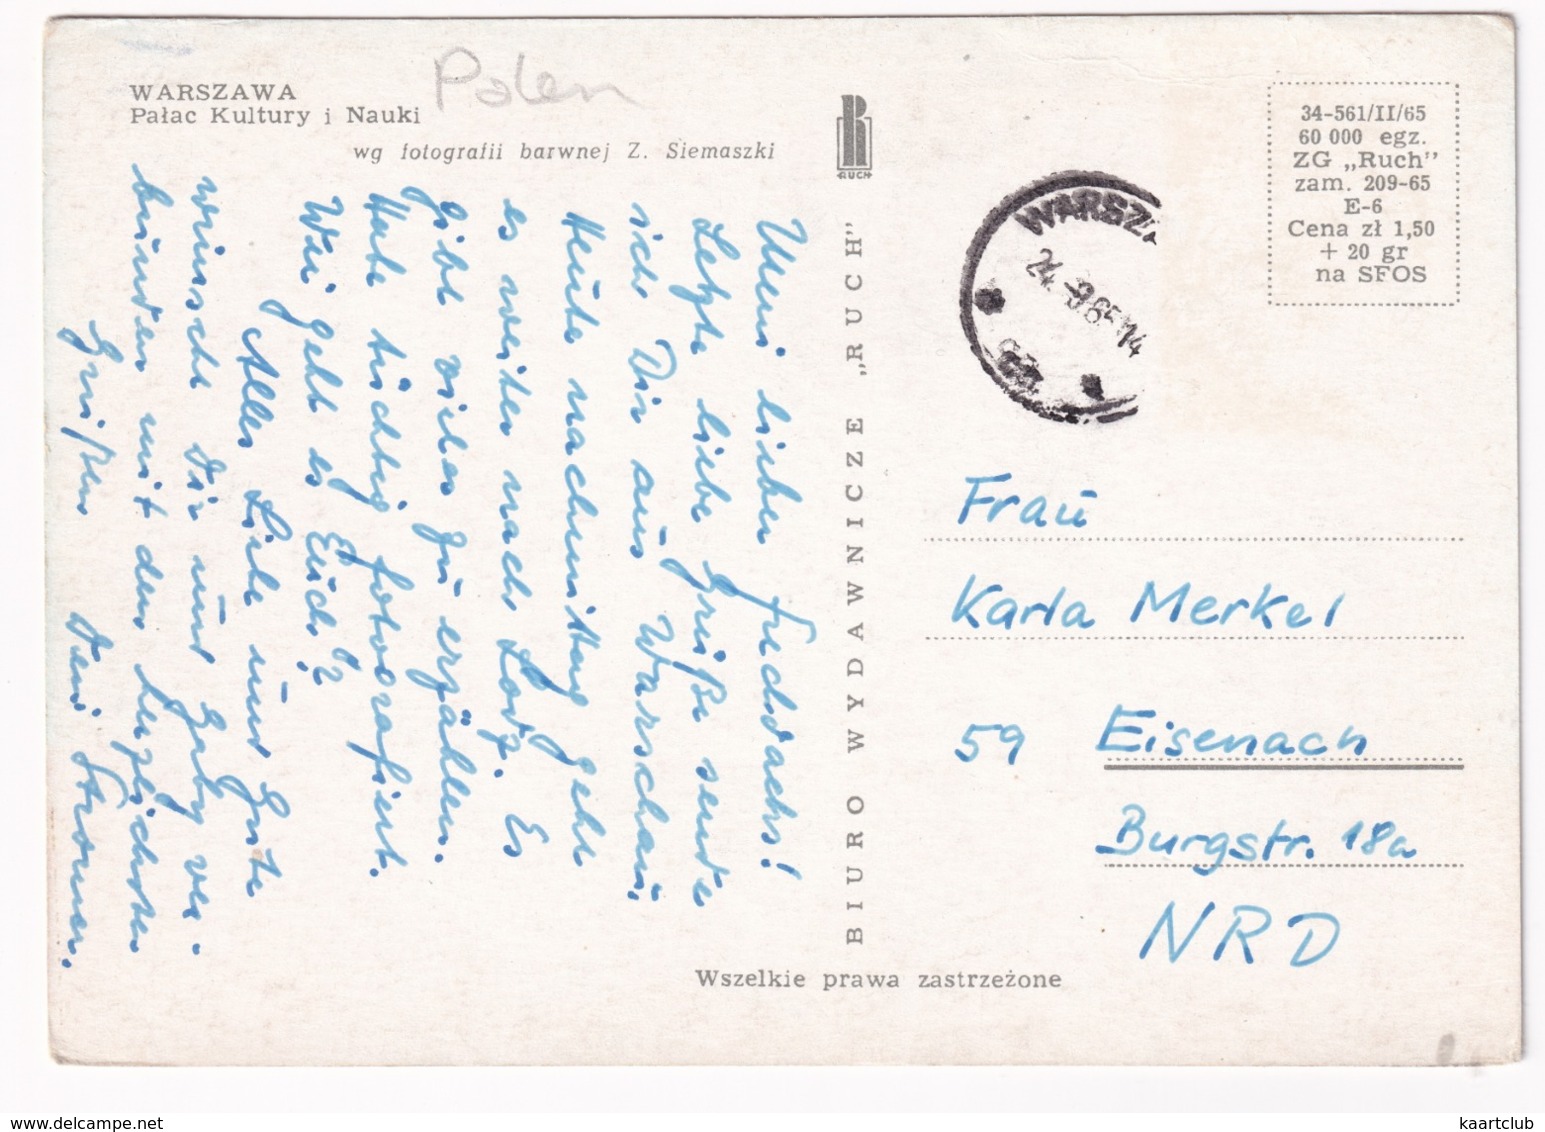 WARSZAWA
Pałac Kultury i Nauki
Polen
wg fotografii barwnej Z. Siemaszki
lieber
Letzte liebe Grüße sende
ich Dir aus Warschau.
Heute nachmittag geht
es weiter nach Lodz. Es
gibt viel zu erzählen.
Habe tüchtig fotografiert.
Wie geht es Euch?
Alles Liebe und Gute
wünscht Dir und Gaby ver-
bunden mit den herzlichsten
Grüßen Dein
RUCH
BIURO WYDAWNICZE „RUCH”
Wszelkie prawa zastrzeżone
WARSZA
24.-9.65 14
34-561/II/65
60 000 egz.
ZG „Ruch”
zam. 209-65
E-6
Cena zł 1,50
+ 20 gr
na SFOS
Frau
Karla Merkel
59 Eisenach
Burgstr. 18a
NRD
www.delcampe.net
kaartclub